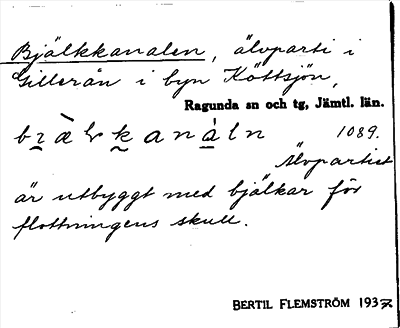 Bjälkkanalen, älvparti i
Gillerån i byn Köttsjön,
Ragunda sn och tg, Jämtl. län.
1089.
Älvpartiet
är utbyggt med bjälkar för
flottningens skull.
BERTIL FLEMSTRÖM 1937